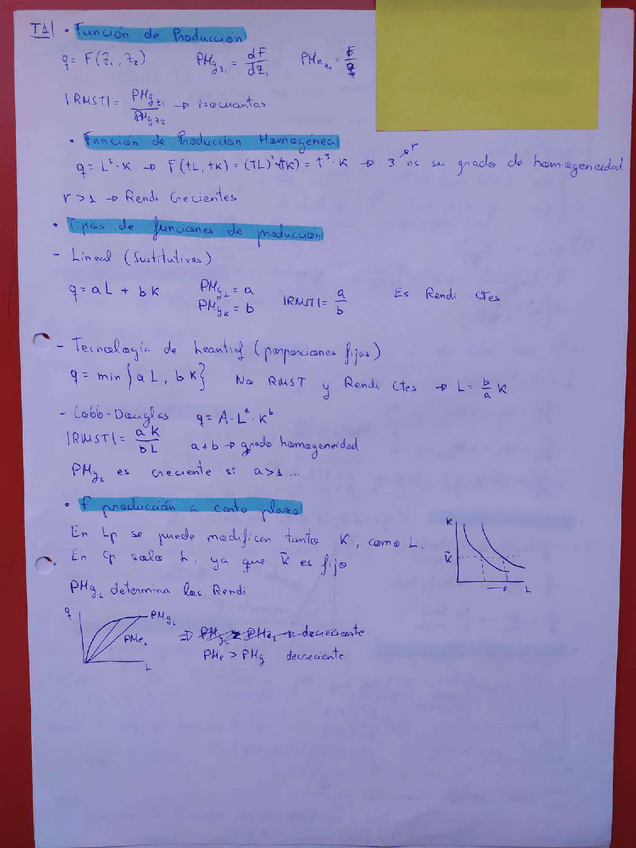 TA1 • Función de Producción
q = F(z₁, z₂) PMg z₁ = dF/dz₁ PMe z₁ =
|RMST| = PMg z₁/PMg z₂ → isocuantas
• Función de Producción Homogénea
q = L²·K → F(tL, tK) = (tL)²·(tK) = t³·K → 3 → r es su grado de homogeneidad
r > 1 → Rendi Crecientes
• Tipos de funciones de producción
- Lineal (Sustitutivas)
q = aL + bK PMg L = a PMg K = b |RMST| = a/b Es Rendi Ctes
- Tecnología de Leontief (proporciones fijas)
q = min {aL, bK} No RMST y Rendi Ctes → L = b/a K
- Cobb-Douglas q = A·Lᵃ·Kᵇ
|RMST| = aK/bL a+b → grado homogeneidad
PMg L es creciente si a>1 ...
• F producción a corto plazo
En Lp se puede modificar tanto K, como L.
En Cp solo L, ya que K̄ es fijo
PMg L determina los Rendi
K
K̄
L
q
PMg L
PMe L
L
⇒ decreciente
PMe > PMg decreciente